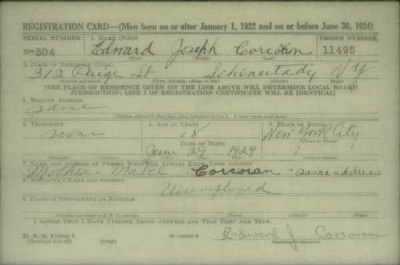 REGISTRATION CARD—(Men born on or after January 1, 1922 and on or before June 30, 1924)
SERIAL NUMBER 1. NAME (Print) ORDER NUMBER
504 Edward Joseph Corcoran 11495
2. PLACE OF RESIDENCE (Print)
312 Paige St Schenectady N Y
[THE PLACE OF RESIDENCE GIVEN ON THE LINE ABOVE WILL DETERMINE LOCAL BOARD
JURISDICTION; LINE 2 OF REGISTRATION CERTIFICATE WILL BE IDENTICAL]
3. MAILING ADDRESS
Same
4. TELEPHONE 5. AGE IN YEARS 6. PLACE OF BIRTH
none 18 New York City
DATE OF BIRTH
June 29 1924
7. NAME AND ADDRESS OF PERSON WHO WILL ALWAYS KNOW YOUR ADDRESS
Mother Corcoran - same address
8. EMPLOYER'S NAME AND ADDRESS
Unemployed
9. PLACE OF EMPLOYMENT OR BUSINESS
I AFFIRM THAT I HAVE VERIFIED ABOVE ANSWERS AND THAT THEY ARE TRUE.
D. S. S. Form 1
Edward J. Corcoran